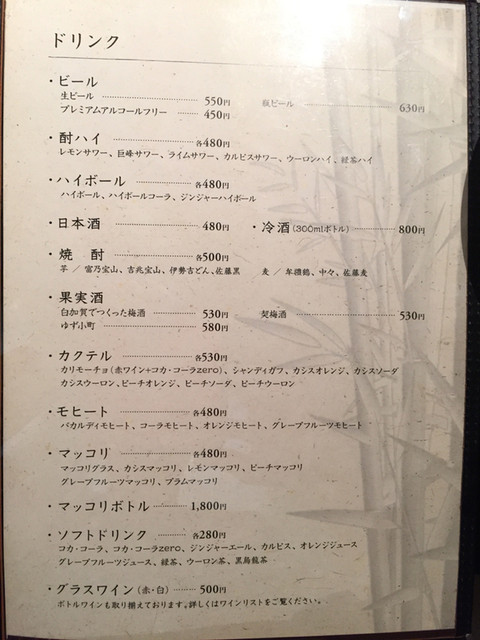 ドリンク
・ビール
生ビール 550円 瓶ビール 630円
プレミアムアルコールフリー 450円
・酎ハイ 各480円
レモンサワー、巨峰サワー、ライムサワー、カルピスサワー、ウーロンハイ、緑茶ハイ
・ハイボール 各480円
ハイボール、ハイボールコーラ、ジンジャーハイボール
・日本酒 480円 ・冷酒(300mlボトル) 800円
・焼 酎 各500円
芋 ／ 富乃宝山、吉兆宝山、伊勢吉どん、佐藤黒 麦 ／ 年 鶴、中々、佐藤麦
・果実酒
白加賀でつくった梅酒 530円 梅酒 530円
ゆず小町 580円
・カクテル 各530円
カリモーチョ(赤ワイン+コカ・コーラzero)、シャンディガフ、カシスオレンジ、カシスソーダ
カシスウーロン、ピーチオレンジ、ピーチソーダ、ピーチウーロン
・モヒート 各480円
バカルディモヒート、コーラモヒート、オレンジモヒート、グレープフルーツモヒート
・マッコリ 各480円
マッコリグラス、カシスマッコリ、レモンマッコリ、ピーチマッコリ
グレープフルーツマッコリ、プラムマッコリ
・マッコリボトル 1,800円
・ソフトドリンク 各280円
コカ・コーラ、コカ・コーラzero、ジンジャーエール、カルピス、オレンジジュース
グレープフルーツジュース、緑茶、ウーロン茶、黒烏龍茶
・グラスワイン(赤・白) 500円
ボトルワインも取り揃えております。詳しくはワインリストをご覧ください。